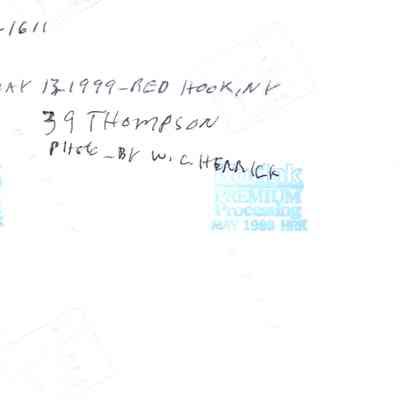 -1611
MAY 13-1999-RED HOOK, NY
39 THOMPSON
PHOTO-BY W.C. HERRICK
Kodak
PREMIUM
Processing
MAY 1999 HRK